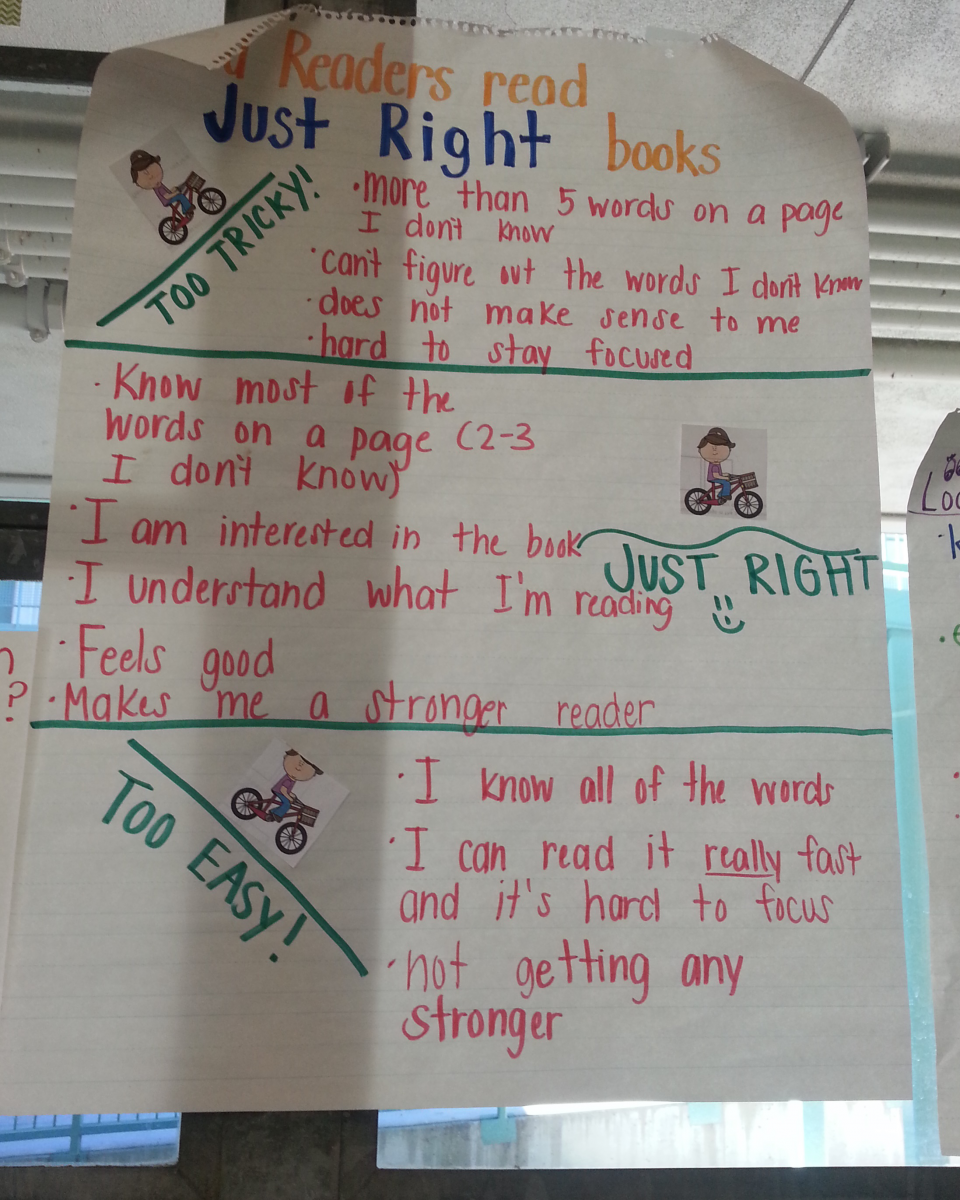 Readers read
Just Right books
TOO TRICKY!
·more than 5 words on a page
I don't know
·can't figure out the words I don't know
·does not make sense to me
·hard to stay focused
·Know most of the
words on a page (2-3
I don't know)
·I am interested in the book
·I understand what I'm reading
·Feels good
·Makes me a stronger reader
JUST RIGHT
TOO EASY!
·I know all of the words
·I can read it really fast
and it's hard to focus
·not getting any
stronger
?